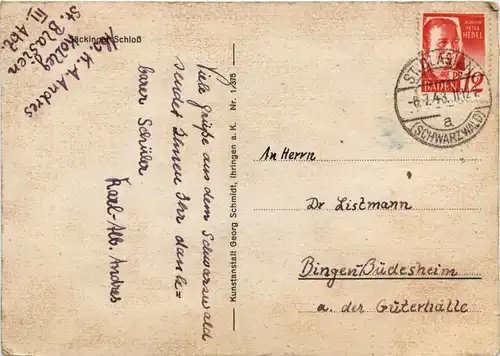 Abs. K. A. Andres
Kolleg
St. Blasien
III. Abt.
Säckingen Schloß
Viele Grüße aus dem Schwarzwald
sendet Ihnen Ihr dank=
barer Schüler
Karl-Alb. Andres
Kunstanstalt Georg Schmidt, Ihringen a. K. Nr. 1.3/5
JOHANN
PETER
HEBEL
BADEN 12
ST. BLASIEN
a
(SCHWARZWALD)
An Herrn
Dr Listmann
Bingen-Büdesheim
a. der Güterhalle